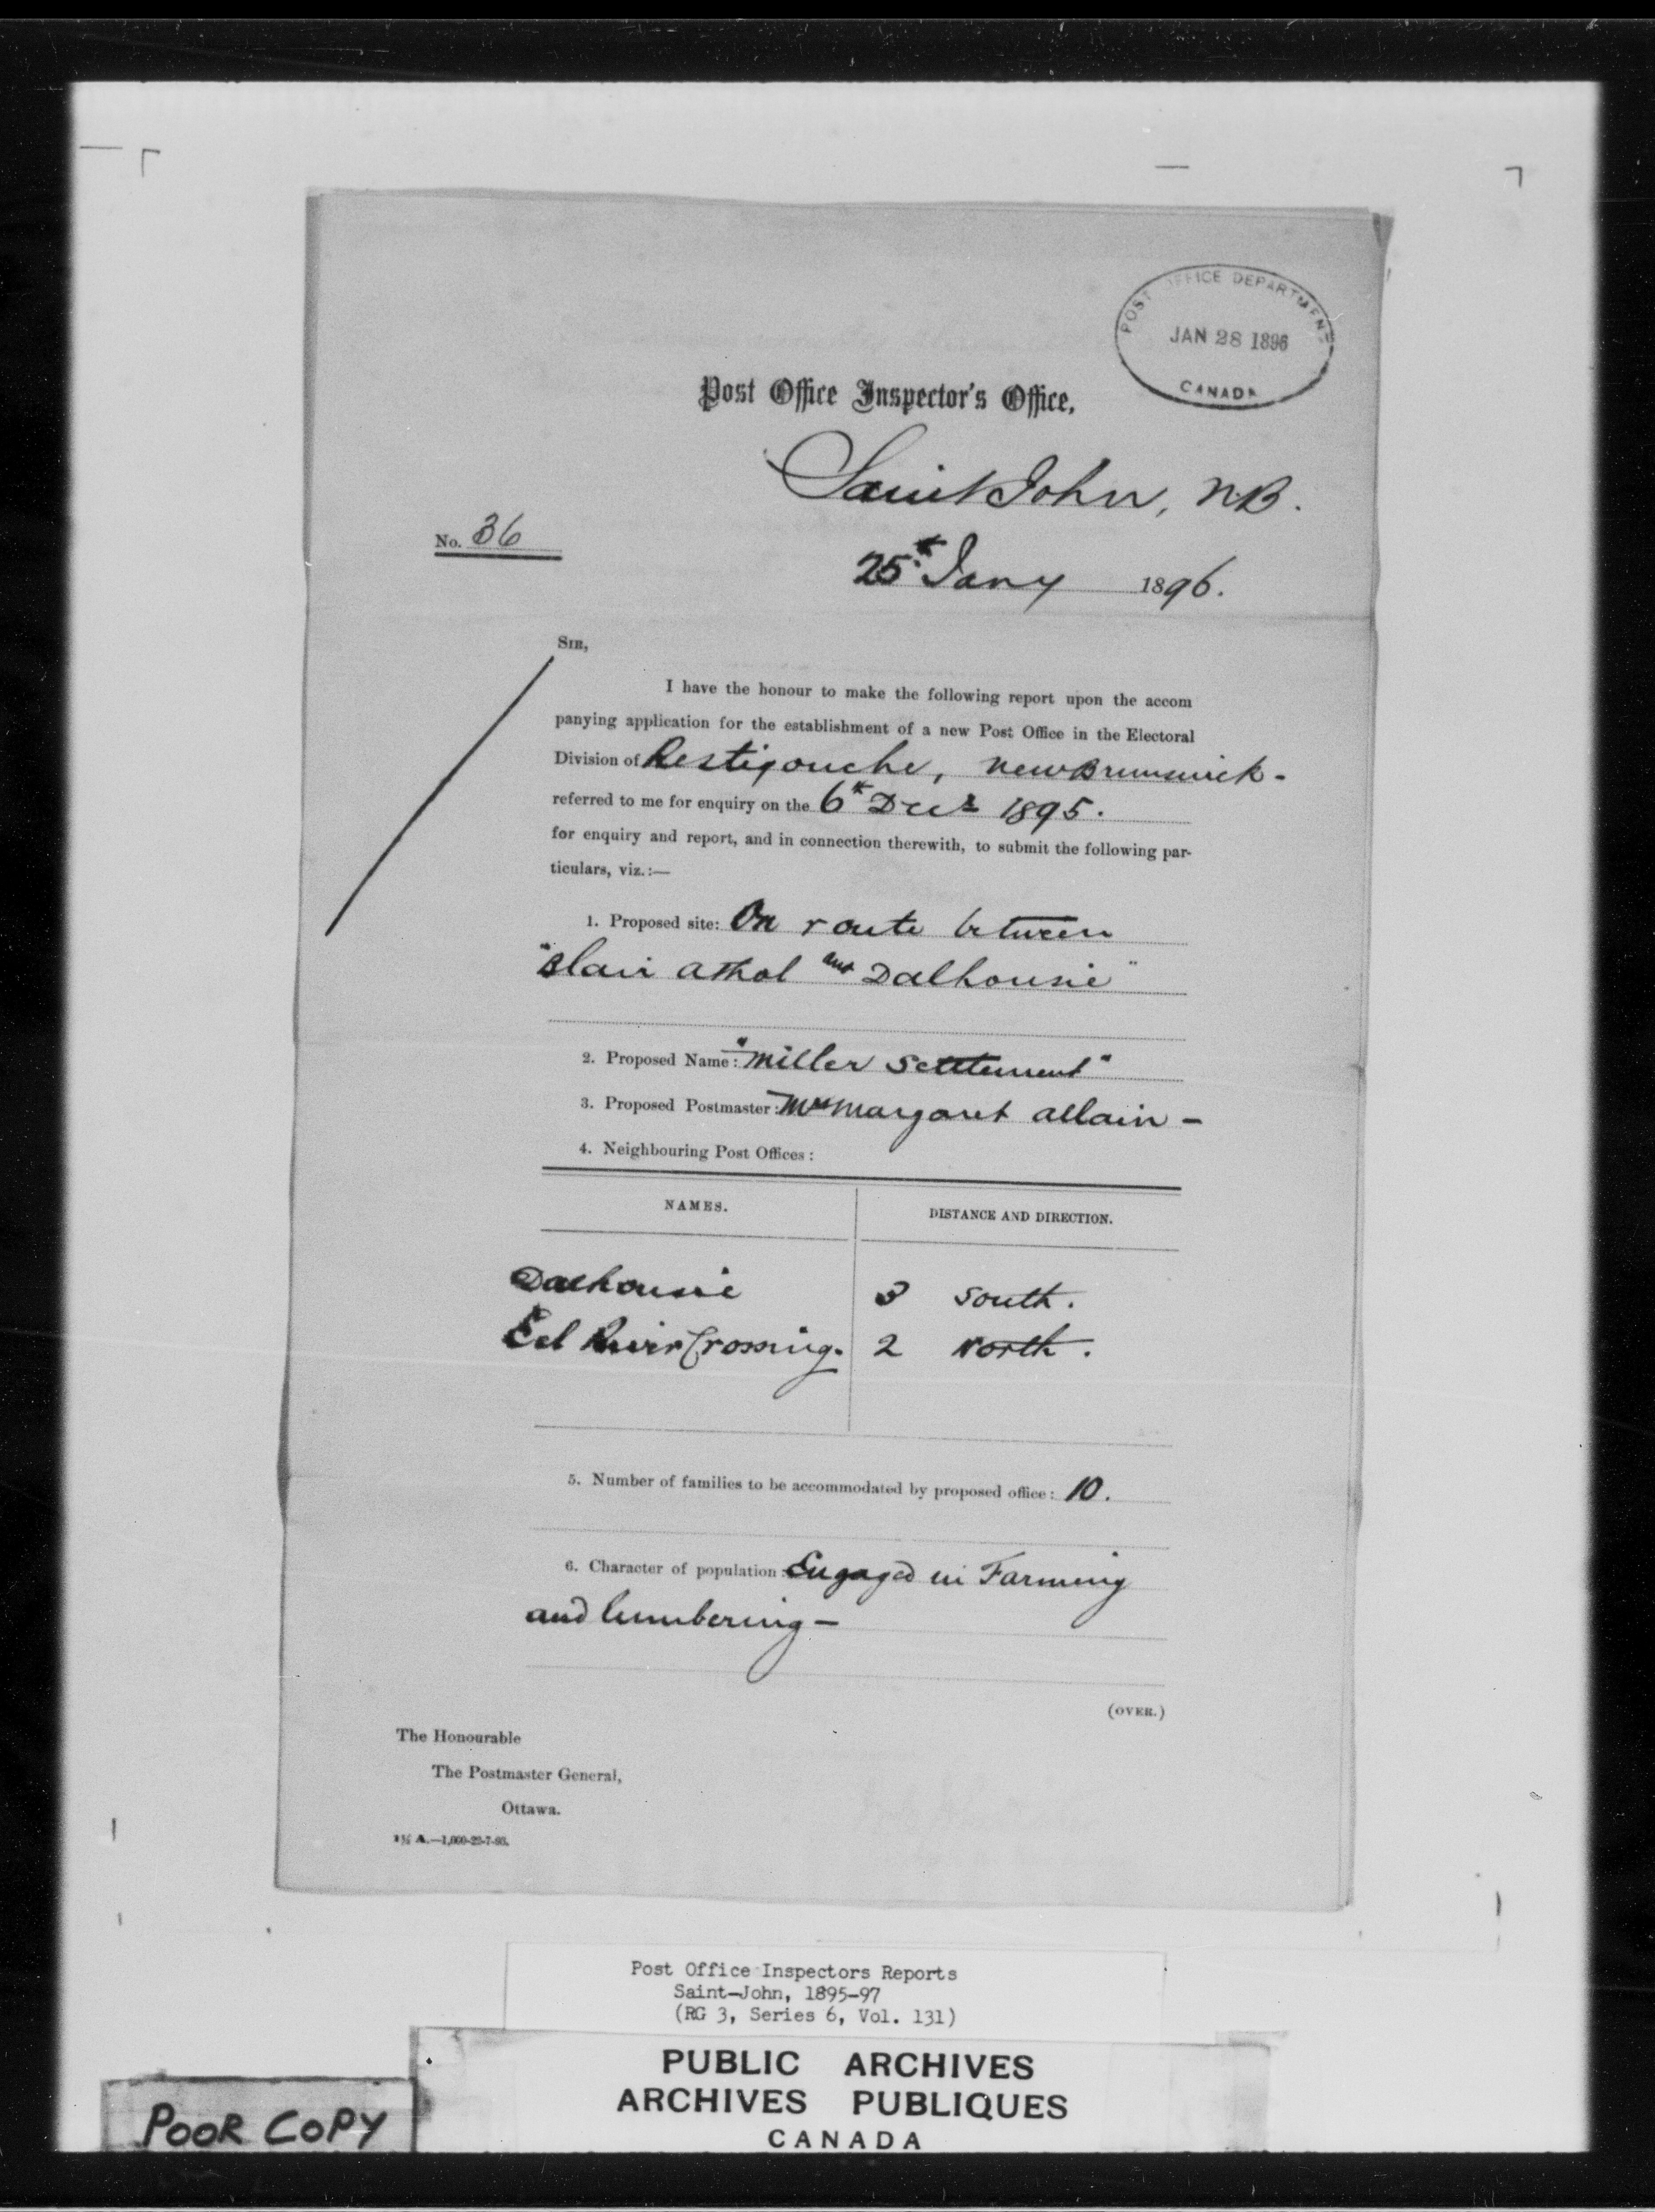 POST OFFICE DEPARTMENT
JAN 28 1896
CANADA
Post Office Inspector's Office,
Saint John, N.B.
No. 36
25th Jany 1896.
SIR,
I have the honour to make the following report upon the accom
panying application for the establishment of a new Post Office in the Electoral
Division of Restigouche, New Brunswick-
referred to me for enquiry on the 6th Decr 1895.
for enquiry and report, and in connection therewith, to submit the following par-
ticulars, viz.:—
1. Proposed site: On route between
"Blair Athol and Dalhousie"
2. Proposed Name: "Miller Settlement"
3. Proposed Postmaster: Mrs Margaret Allain -
4. Neighbouring Post Offices:
NAMES. DISTANCE AND DIRECTION.
Dalhousie 3 South.
Eel River Crossing. 2 North.
5. Number of families to be accommodated by proposed office: 10.
6. Character of population: Engaged in Farming
and lumbering -
(OVER.)
The Honourable
The Postmaster General,
Ottawa.
A.—1,000-22-7-93.
Post Office Inspectors Reports
Saint-John, 1895-97
(RG 3, Series 6, Vol. 131)
PUBLIC ARCHIVES
ARCHIVES PUBLIQUES
CANADA
POOR COPY